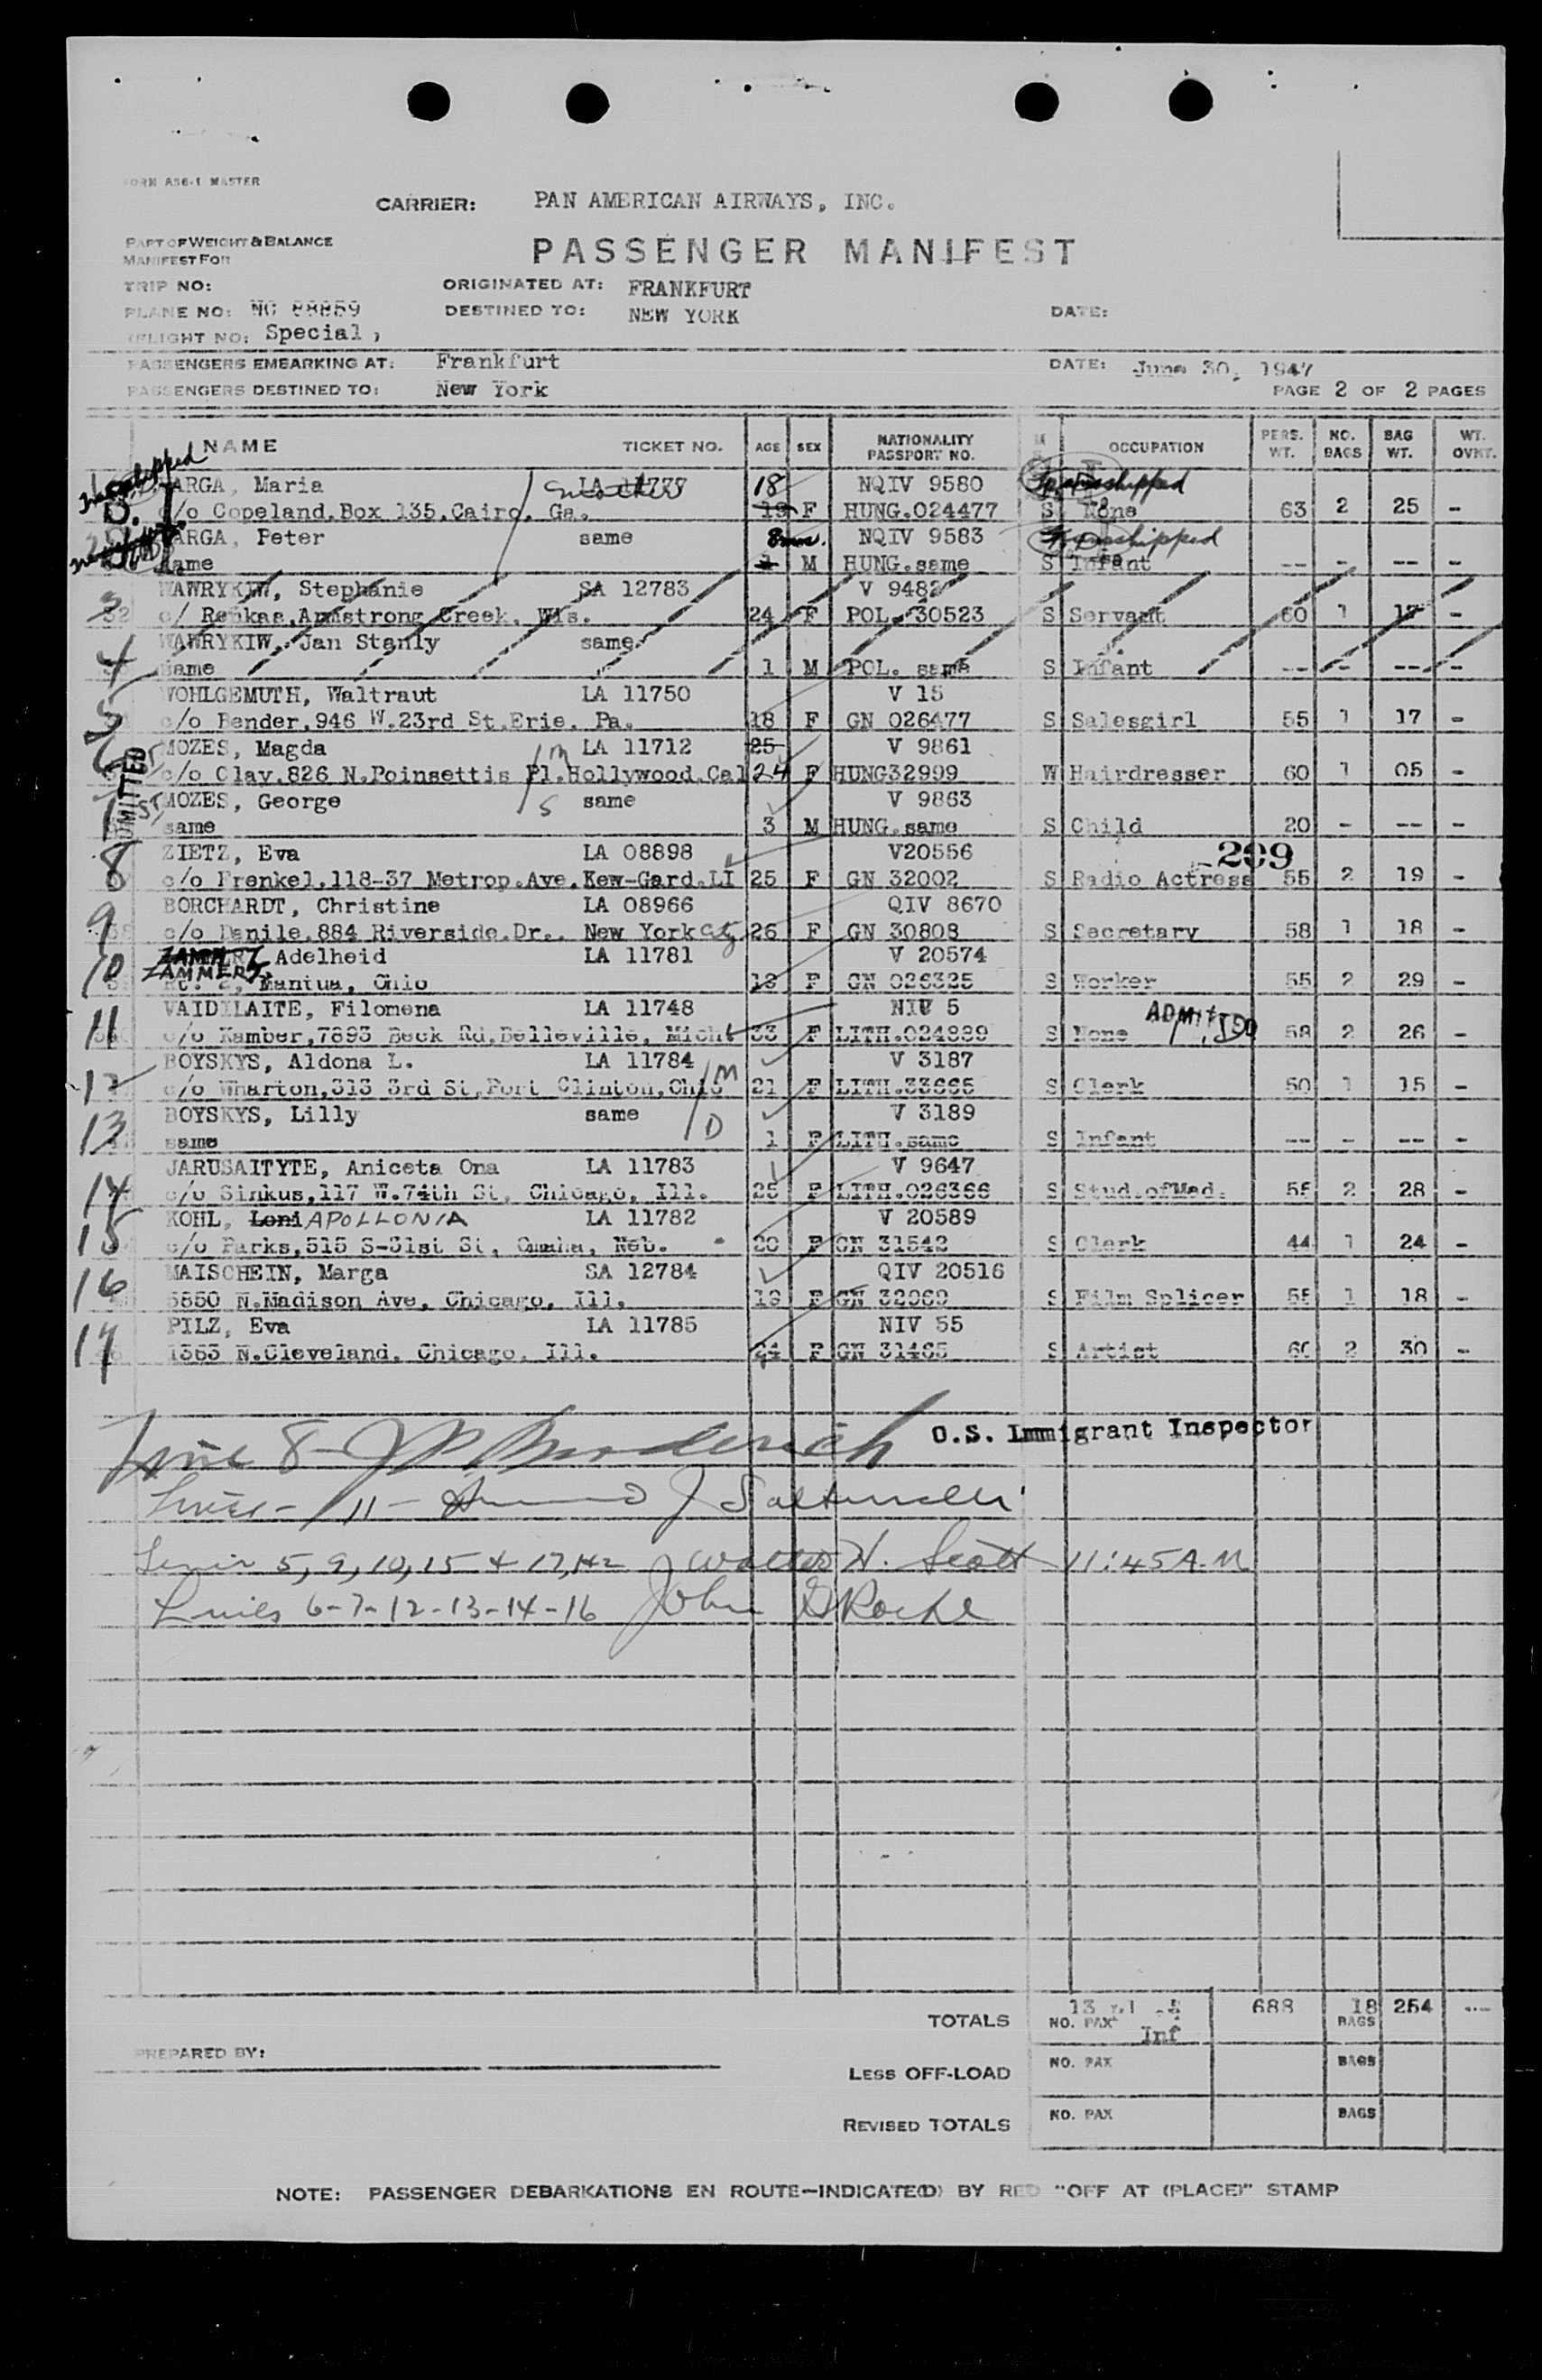 FORM AS6-1 MASTER
CARRIER: PAN AMERICAN AIRWAYS, INC.
PART OF WEIGHT & BALANCE
MANIFEST FOR
PASSENGER MANIFEST
TRIP NO:
ORIGINATED AT: FRANKFURT
PLANE NO: NC 88859
DESTINED TO: NEW YORK
DATE:
FLIGHT NO: Special,
PASSENGERS EMBARKING AT: Frankfurt
DATE: June 30, 1947
PASSENGERS DESTINED TO: New York
PAGE 2 OF 2 PAGES
NAME TICKET NO. AGE SEX NATIONALITY PASSPORT NO. OCCUPATION PERS. WT. NO. BAGS BAG WT. WT. OVWT.
VARGA, Maria 18 NQIV 9580
c/o Copeland.Box 135.Cairo, Ga. 19 F HUNG.024477 S None 63 2 25 -
VARGA, Peter same 8 mos. NQIV 9583
same 1 M HUNG.same S Infant -- - -- -
3 WAWRYKIW, Stephanie SA 12783 V 9482
c/ Renkas.Armstrong Creek. Wis. 24 F POL. 30523 S Servant 60 1 -
4 WAWRYKIW, Jan Stanly same
same 1 M POL. same S Infant -- - -- -
5 WOHLGEMUTH, Waltraut LA 11750 V 15
c/o Bender.946 W.23rd St.Erie. Pa. 18 F GN 026477 S Salesgirl 55 1 17 -
6 MOZES, Magda M LA 11712 25 V 9861
c/o Clay.826 N.Poinsettis Pl.Hollywood.Cal 24 F HUNG32999 W Hairdresser 60 1 05 -
ADMITTED
7 MOZES, George S same V 9863
same 3 M HUNG.same S Child 20 - -- -
299
8 ZIETZ, Eva LA 08898 V20556
c/o Frenkel.118-37 Metrop.Ave.Kew-Gard.LI 25 F GN 32002 S Radio Actress 55 2 19 -
9 BORCHARDT, Christine LA 08966 QIV 8670
c/o Danile.884 Riverside.Dr.. New York City 26 F GN 30808 S Secretary 58 1 18 -
10 ZAMMERT, Adelheid LA 11781 V 20574
Rt. 2, Mantua, Ohio 19 F GN 026325 S Worker 55 2 29 -
11 VAIDILAITE, Filomena LA 11748 NIV 5 ADMITTED
c/o Kamber,7893 Beck Rd,Belleville, Mich. 33 F LITH.024889 S None 58 2 26 -
12 BOYSKYS, Aldona L. LA 11784 M V 3187
c/o Wharton,313 3rd St,Port Clinton,Ohio 21 F LITH.33665 S Clerk 50 1 15 -
13 BOYSKYS, Lilly same D V 3189
same 1 F LITH.same S Infant -- - -- -
14 JARUSAITYTE, Aniceta Ona LA 11783 V 9647
c/o Sinkus,117 W.74th St, Chicago, Ill. 25 F LITH.026366 S Stud.ofMed. 55 2 28 -
15 KOHL, Loni APOLLONIA LA 11782 V 20589
c/o Parks,515 S-31st St, Omaha, Neb. 20 F GN 31542 S Clerk 44 1 24 -
16 MAISCHEIN, Marga SA 12784 QIV 20516
5850 N.Madison Ave, Chicago, Ill. 19 F GN 32969 S Film Splicer 55 1 18 -
17 PILZ, Eva LA 11785 NIV 55
1363 N.Cleveland. Chicago. Ill. 24 F GN 31465 S Artist 60 2 30 -
Line 8 - U.S. Immigrant Inspector
Line - 11 -
5, 9, 10, 15 + 17, Walter H. Scott 11:45 A.M
Lines 6-7-12-13-14-16 John Roche
TOTALS 13 NO. PAX Inf 688 18 BAGS 254
PREPARED BY:
LESS OFF-LOAD NO. PAX BAGS
REVISED TOTALS NO. PAX BAGS
NOTE: PASSENGER DEBARKATIONS EN ROUTE—INDICATE(D) BY RED "OFF AT (PLACE)" STAMP